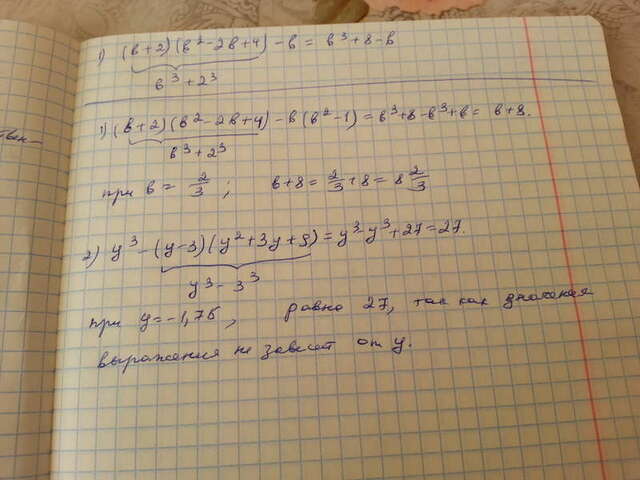 1) (b+2)(b²-2b+4)-b = b³+8-b
b³+2³
1) (b+2)(b²-2b+4)-b(b²-1)=b³+8-b³+b= b+8.
b³+2³
при b = 2/3 ; b+8 = 2/3+8 = 8 2/3
2) y³-(y-3)(y²+3y+9)=y³-y³+27=27.
y³-3³
при y=-1,75, равно 27, так как значения
выражения не зависит от y.